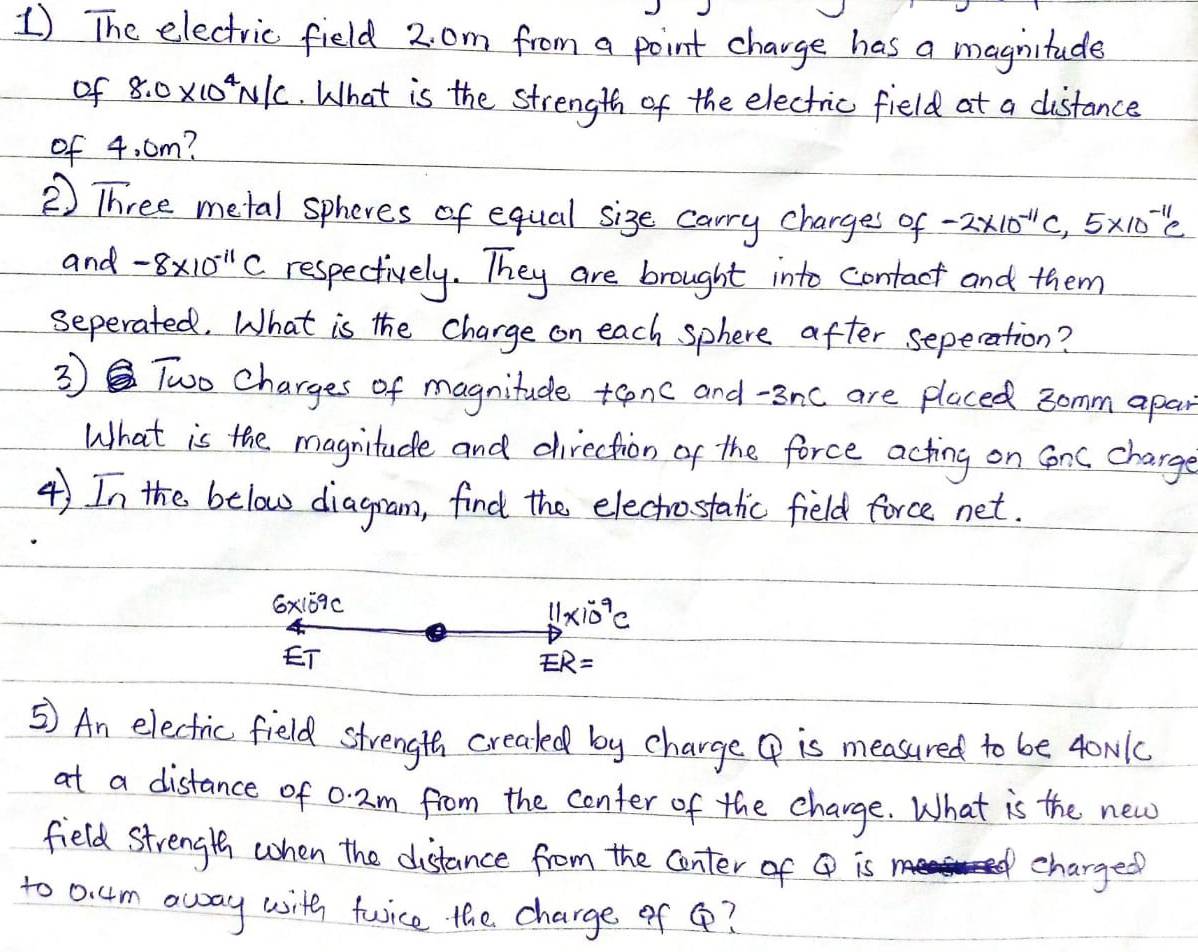 1) The electric field 2.0m from a point charge has a magnitude
of 8.0 x10⁴N/C. What is the strength of the electric field at a distance
of 4.0m?
2) Three metal spheres of equal size carry charges of -2x10⁻¹¹C, 5x10⁻¹¹c
and -8x10⁻¹¹ C respectively. They are brought into contact and them
seperated. What is the charge on each sphere after seperation?
3) Two charges of magnitude +6nC and -3nC are placed 30mm apar
What is the magnitude and direction of the force acting on 6nC charge
4) In the below diagram, find the electrostatic field force net.
6x10⁻⁹C 11x10⁻⁹C
ET ER=
5) An electric field strength created by charge Q is measured to be 40N/C
at a distance of 0.2m from the center of the charge. What is the new
field strength when the distance from the center of Q is charged
to 0.4m away with twice the charge of Q?